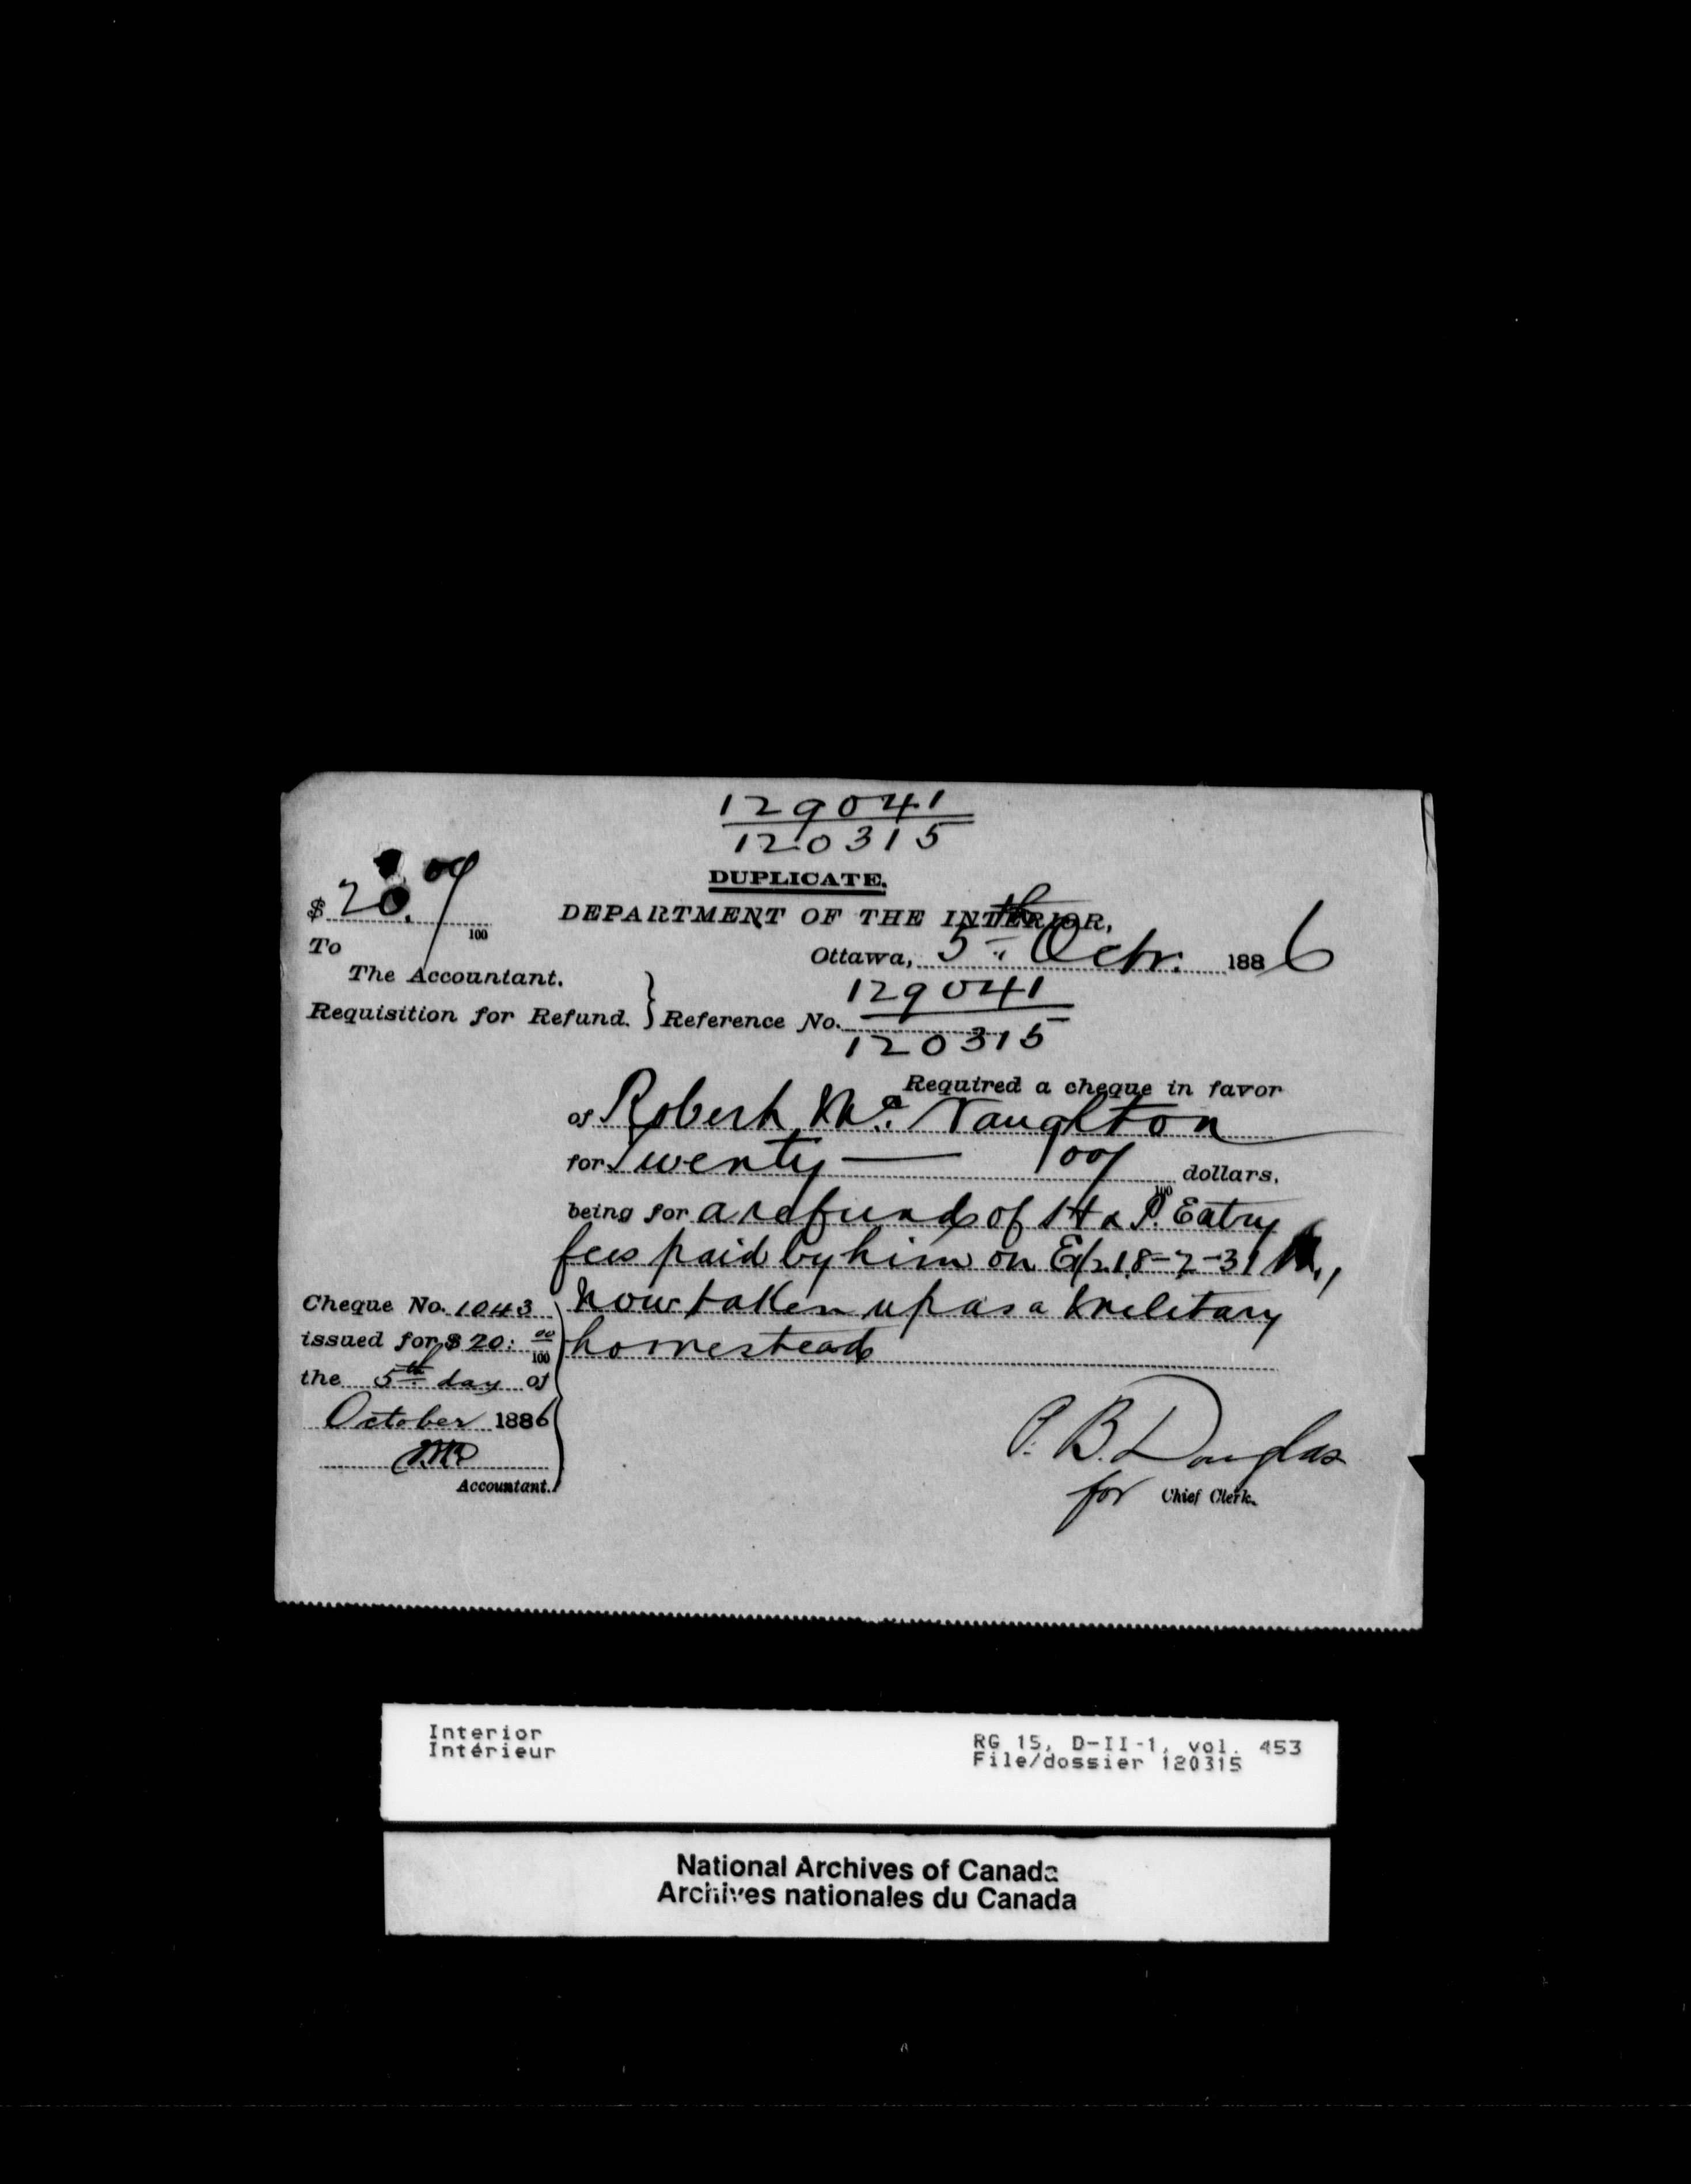 129041
120315
DUPLICATE.
$ 20. 00/100
DEPARTMENT OF THE INTERIOR,
To
Ottawa, 5th Octr. 1886
The Accountant.
129041
Requisition for Refund. } Reference No.
120315
Required a cheque in favor
of Robert Mc. Naughton
for Twenty — 00/100 dollars,
being for a refund of H & P. Entry
fees paid by him on E/2 18-7-31
Cheque No. 1043 now taken up as a military
issued for $ 20: 00/100 homestead
the 5th day of
October 1886
P. B. Douglas
Accountant.
for Chief Clerk.
Interior
Intérieur
RG 15, D-II-1, vol. 453
File/dossier 120315
National Archives of Canada
Archives nationales du Canada